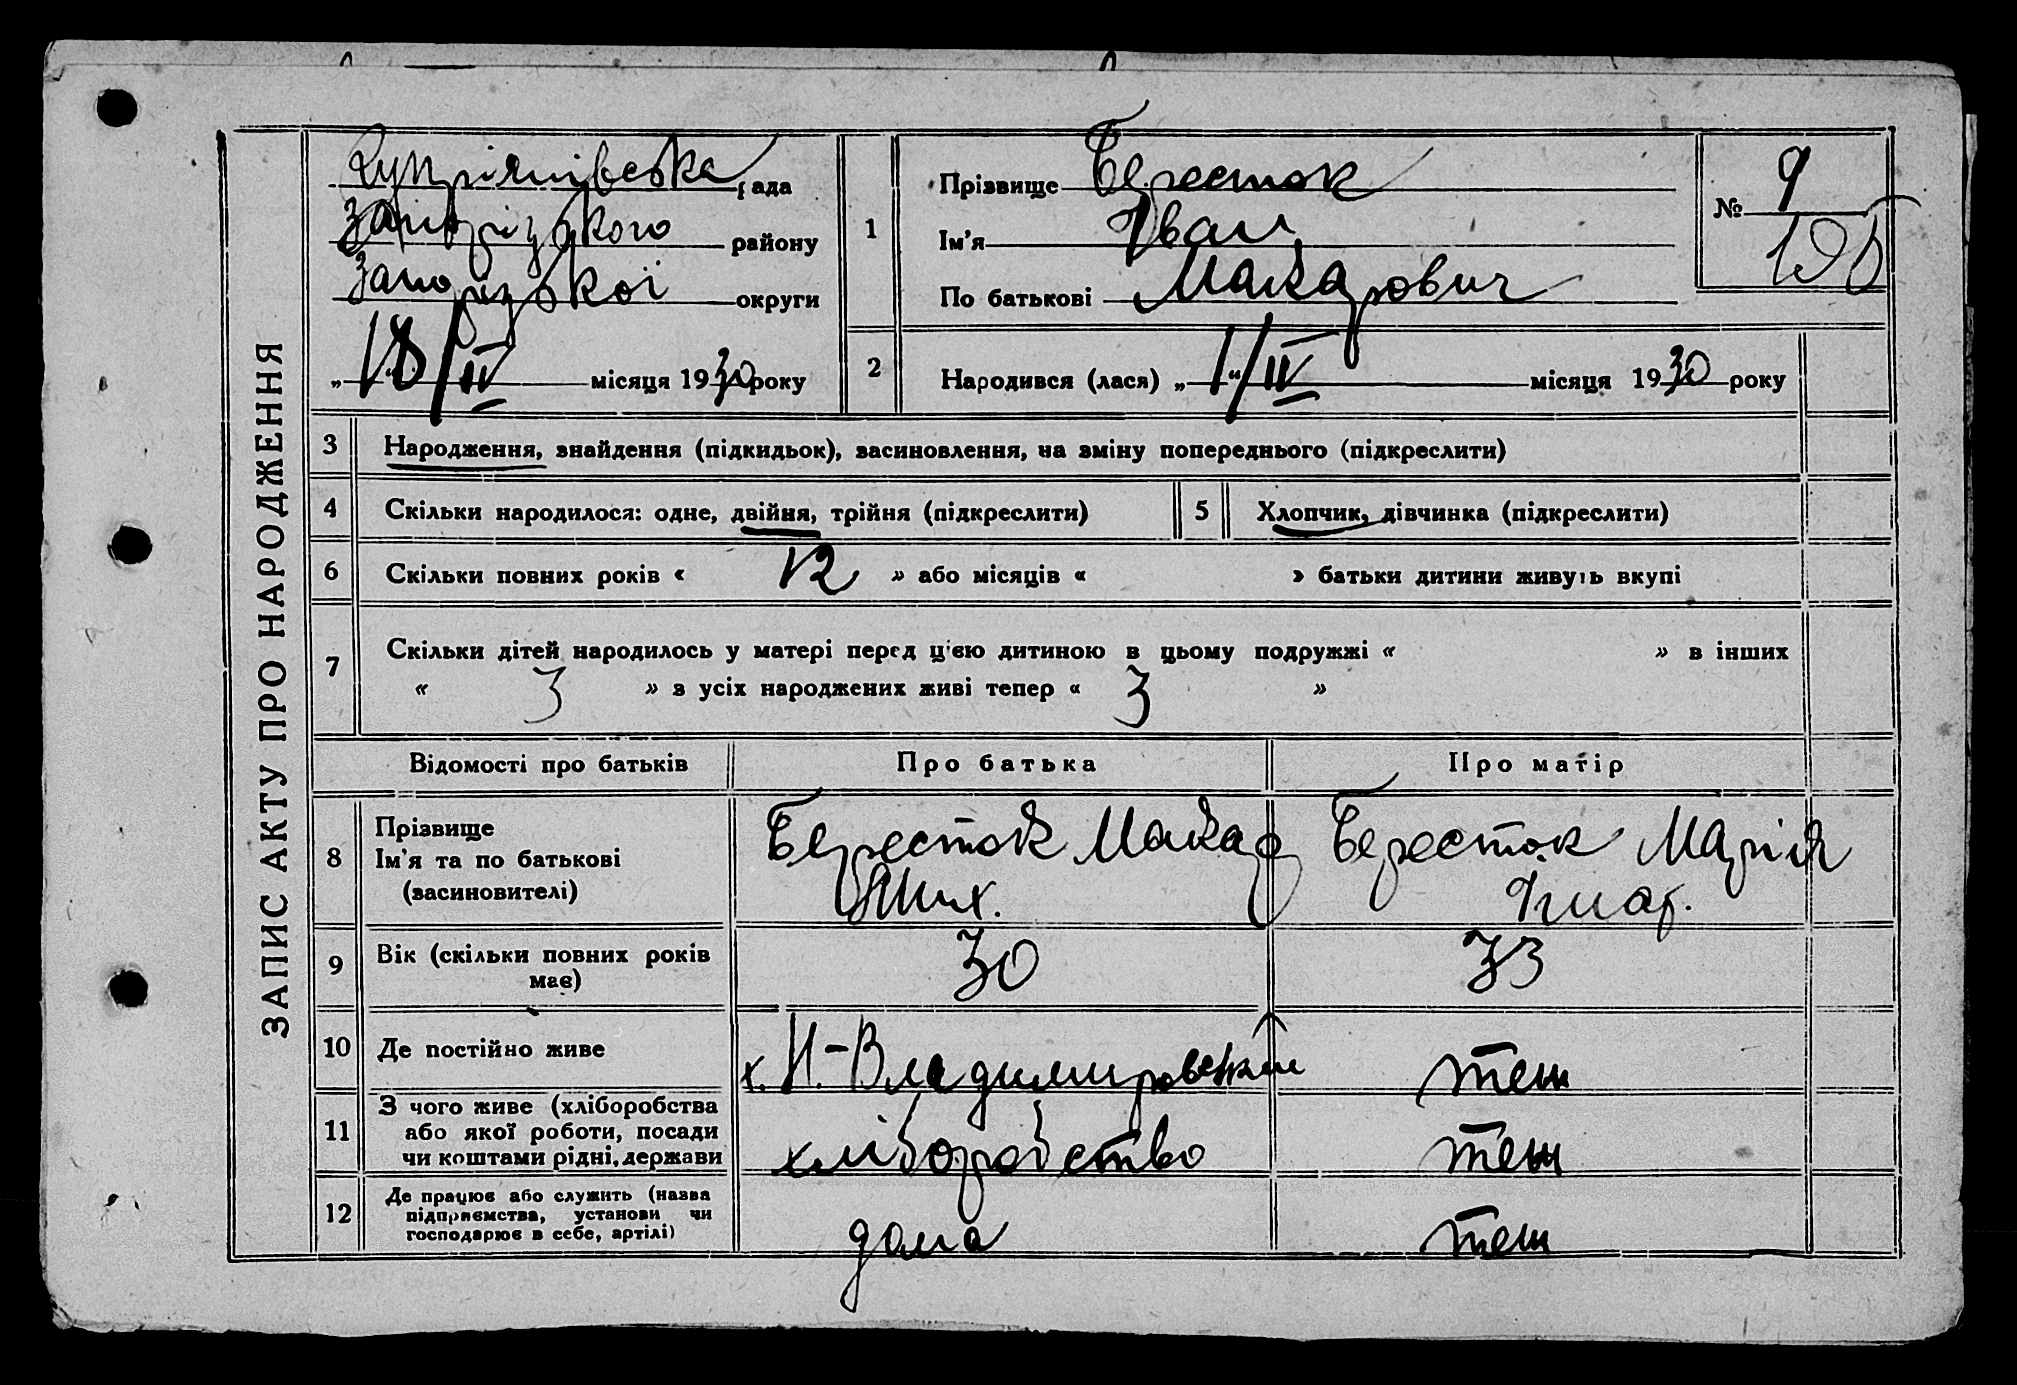 ЗАПИС АКТУ ПРО НАРОДЖЕННЯ
Купріянівська рада
Запорізького району
Запорізької округи
„18“/IV місяця 1930 року
1
Прізвище Бересток
Ім'я Іван
По батькові Макарович
№ 9
2
Народився (лася) „1“/IV місяця 1930 року
3 Народження, знайдення (підкидьок), засиновлення, на зміну попереднього (підкреслити)
4 Скільки народилося: одне, двійня, трійня (підкреслити) 5 Хлопчик, дівчинка (підкреслити)
6 Скільки повних років « 12 » або місяців « » батьки дитини живуть вкупі
7 Скільки дітей народилось у матері перед ц'єю дитиною в цьому подружжі « » в інших
« 3 » з усіх народжених живі тепер « 3 »
Відомості про батьків Про батька Про матір
8 Прізвище
Ім'я та по батькові
(засиновителі)
Бересток Макар
Тих.
Бересток Марія
9 Вік (скільки повних років
має)
30 33
10 Де постійно живе х. Н.-Владимировський теж
11 З чого живе (хліборобства
або якої роботи, посади
чи коштами рідні, держави
хліборобство теж
12 Де працює або служить (назва
підприємства, установи чи
господарює в себе, артілі)
дома теж